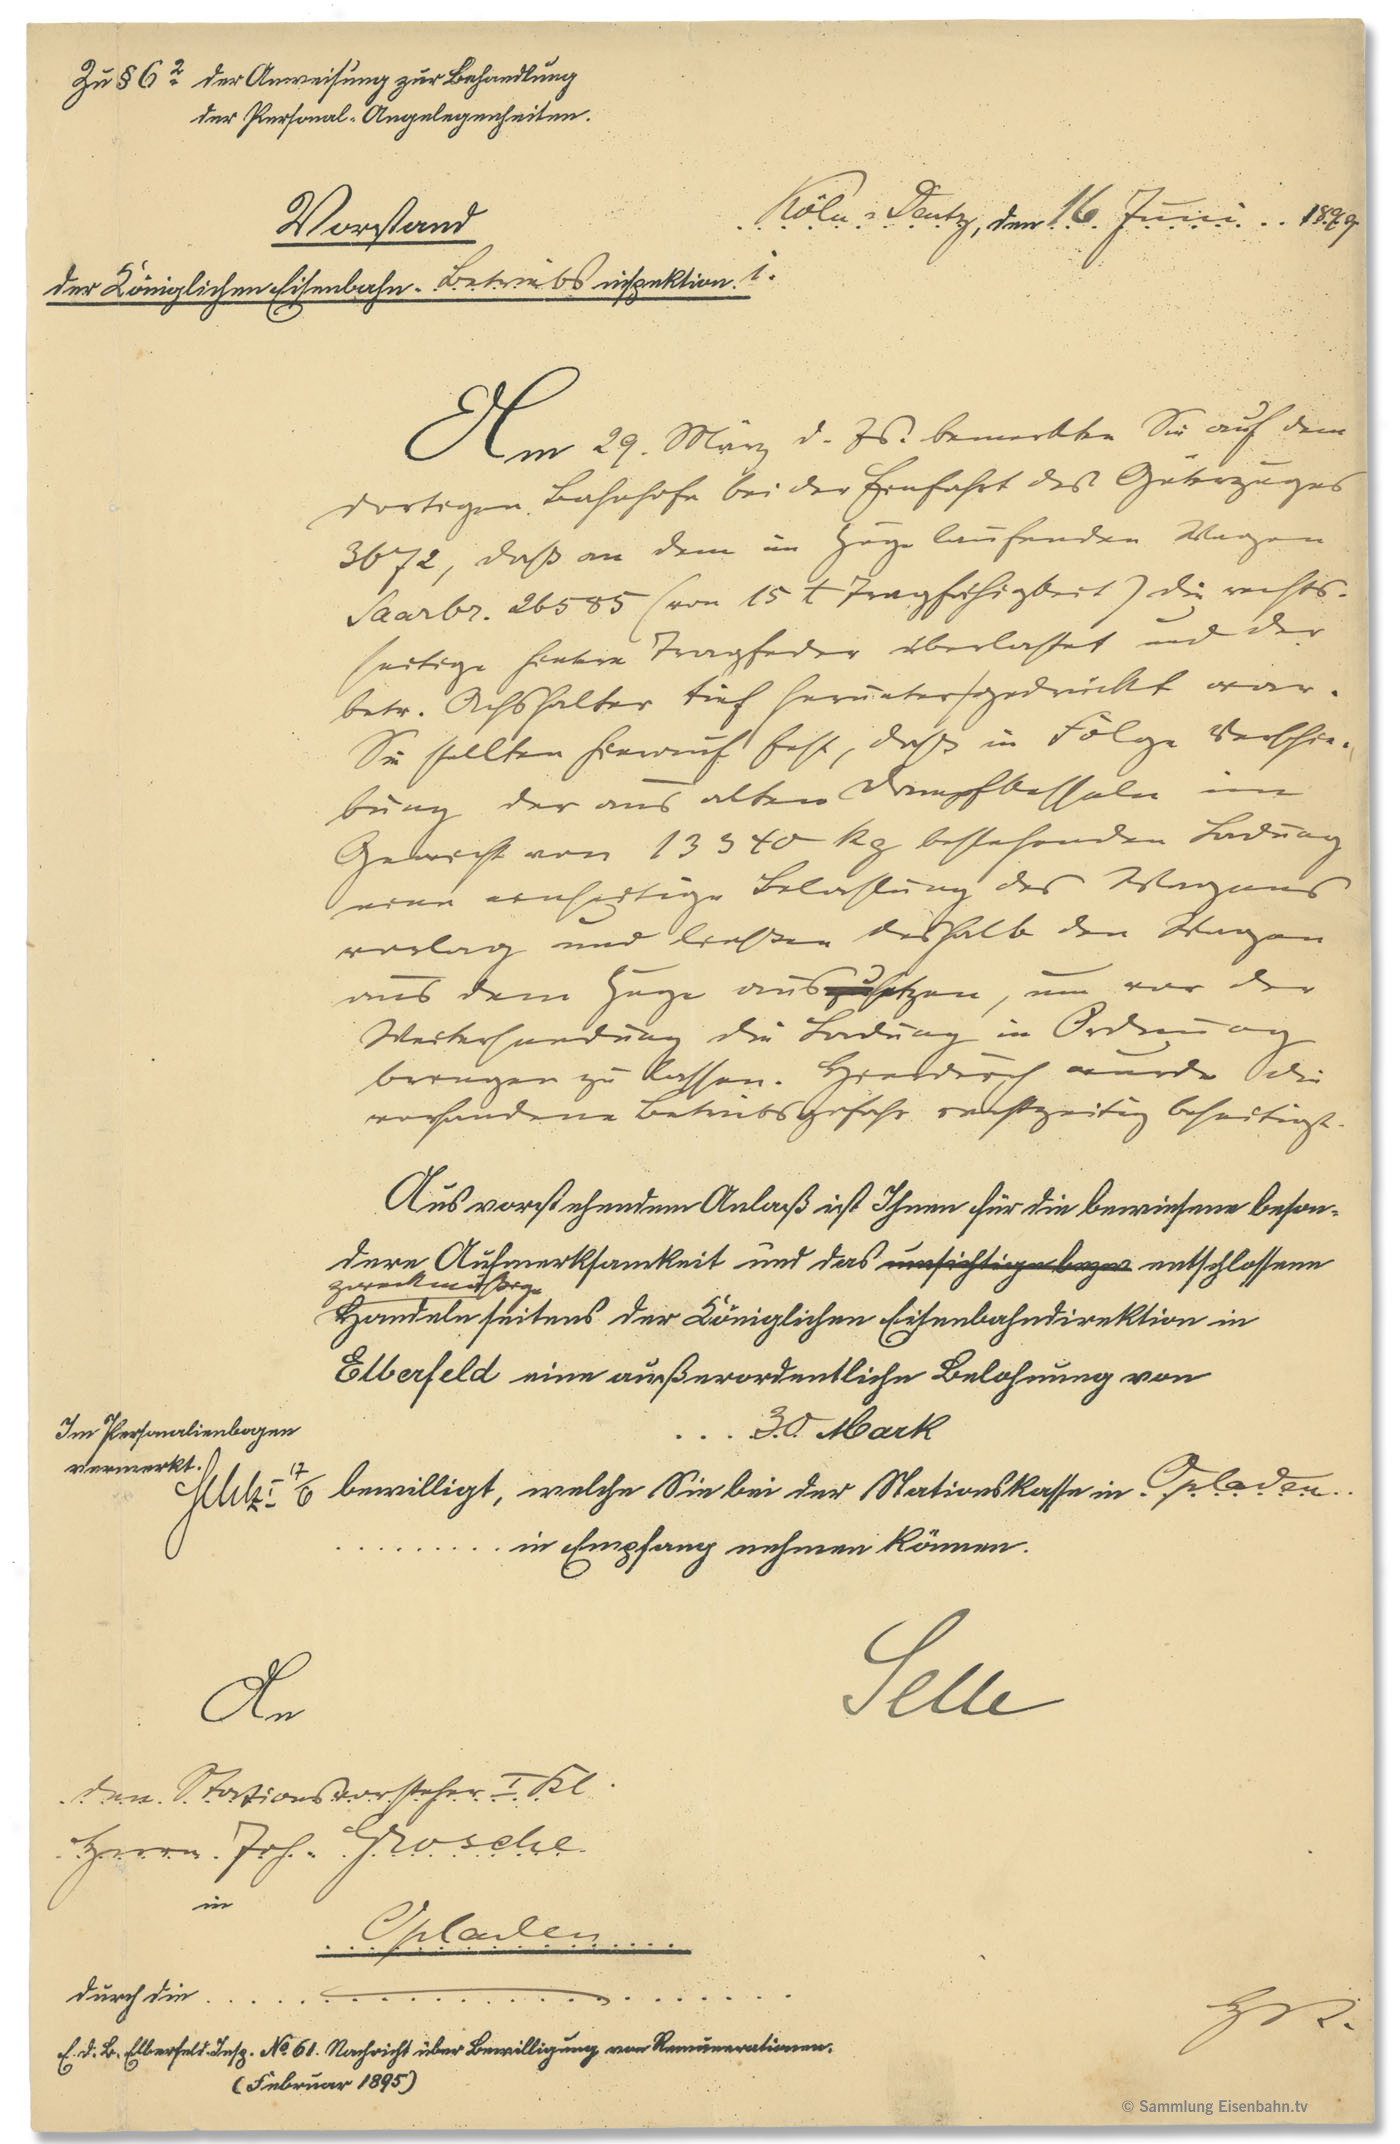 Zu § 6² der Anweisung zur Behandlung
der Personal-Angelegenheiten.
Vorstand
der Königlichen Eisenbahn-Betriebsinspektion 1.
Köln-Deutz, den 16. Juni 1899
Am 29. März d. Js. bemerkten Sie auf dem
dortigen Bahnhofe bei der Einfahrt des Güterzuges
3672, daß an dem im Zuge laufenden Wagen
Saarbr. 26585 (von 15 t Tragfähigkeit) die rechts-
seitige hintere Tragfeder überlastet und der
betr. Achshalter tief heruntergedrückt war.
Sie stellten hierauf fest, daß in Folge Verschie-
bung der aus alten Dampfkesseln im
Gewicht von 13340 kg bestehenden Ladung
eine einseitige Belastung des Wagens
vorlag und ließen deshalb den Wagen
aus dem Zuge aussetzen, um vor der
Weitersendung die Ladung in Ordnung
bringen zu lassen. Hierdurch wurde die
vorhandene Betriebsgefahr rechtzeitig beseitigt.
Aus vorstehendem Anlaß ist Ihnen für die bewiesene beson-
dere Aufmerksamkeit und das umsichtige bezw entschlossene
zweckmäßige
Handeln seitens der Königlichen Eisenbahndirektion in
Elberfeld eine außerordentliche Belohnung von
30 Mark
Im Personalienbogen
vermerkt.
17/6
bewilligt, welche Sie bei der Stationskasse in Opladen
in Empfang nehmen können.
Selle
An
den Stationsvorsteher I Kl.
Herrn Joh. Grosche
in
Opladen
durch die
E. d. B. Elberfeld. Insp. No 61. Nachricht über Bewilligung von Remunerationen.
(Februar 1895)
© Sammlung Eisenbahn.tv